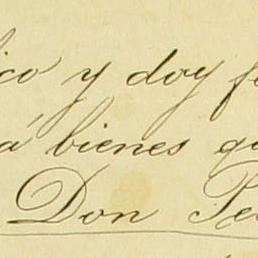 ico y doy fe
á bienes qu
Don Pe